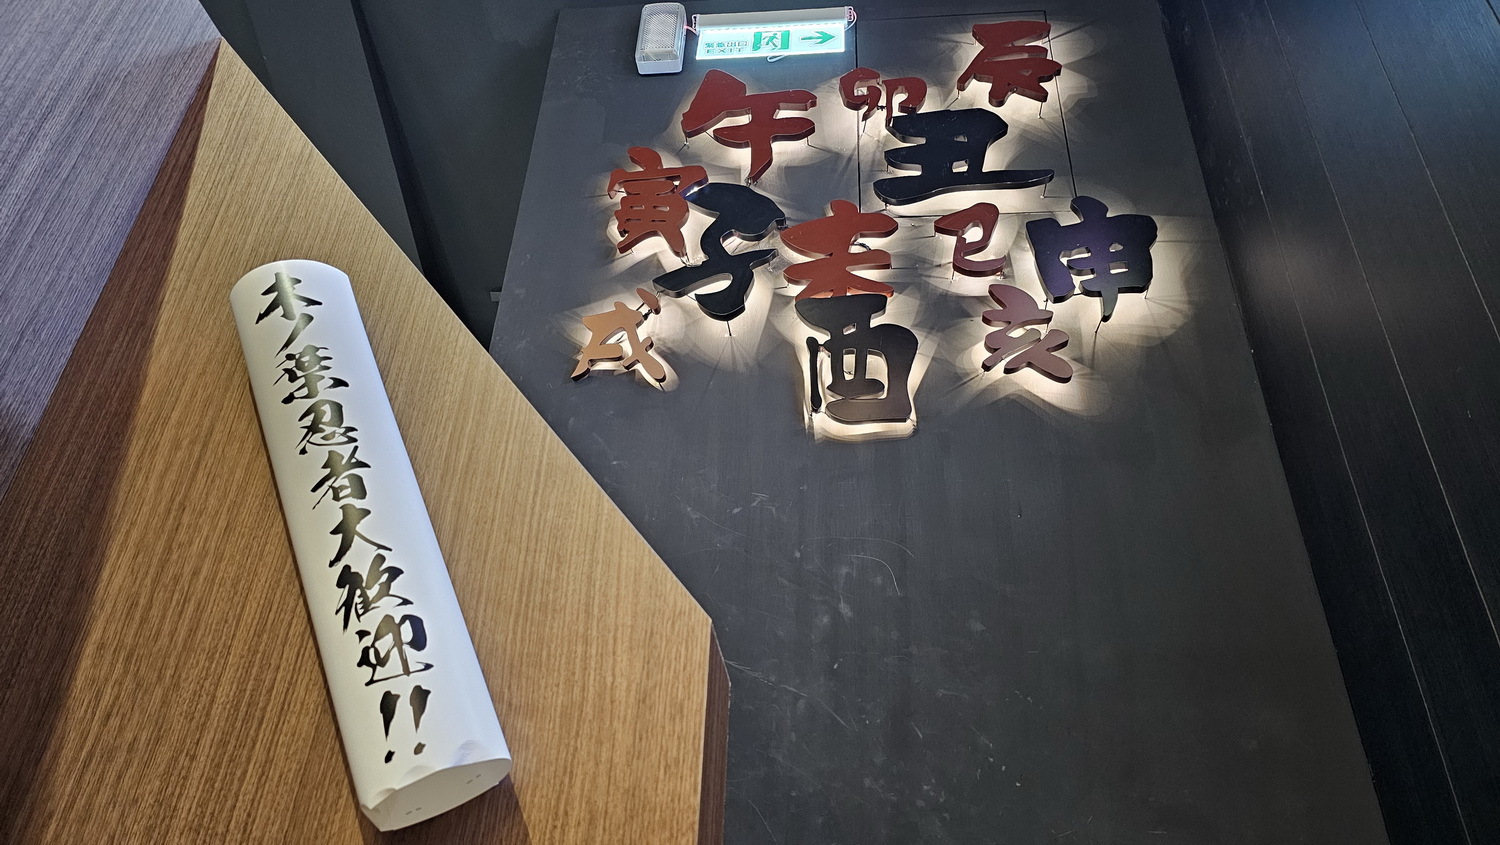 木ノ葉忍者大歓迎!!
緊急出口
EXIT
辰
午
卯
丑
寅
子
未
巳
申
戌
酉
亥